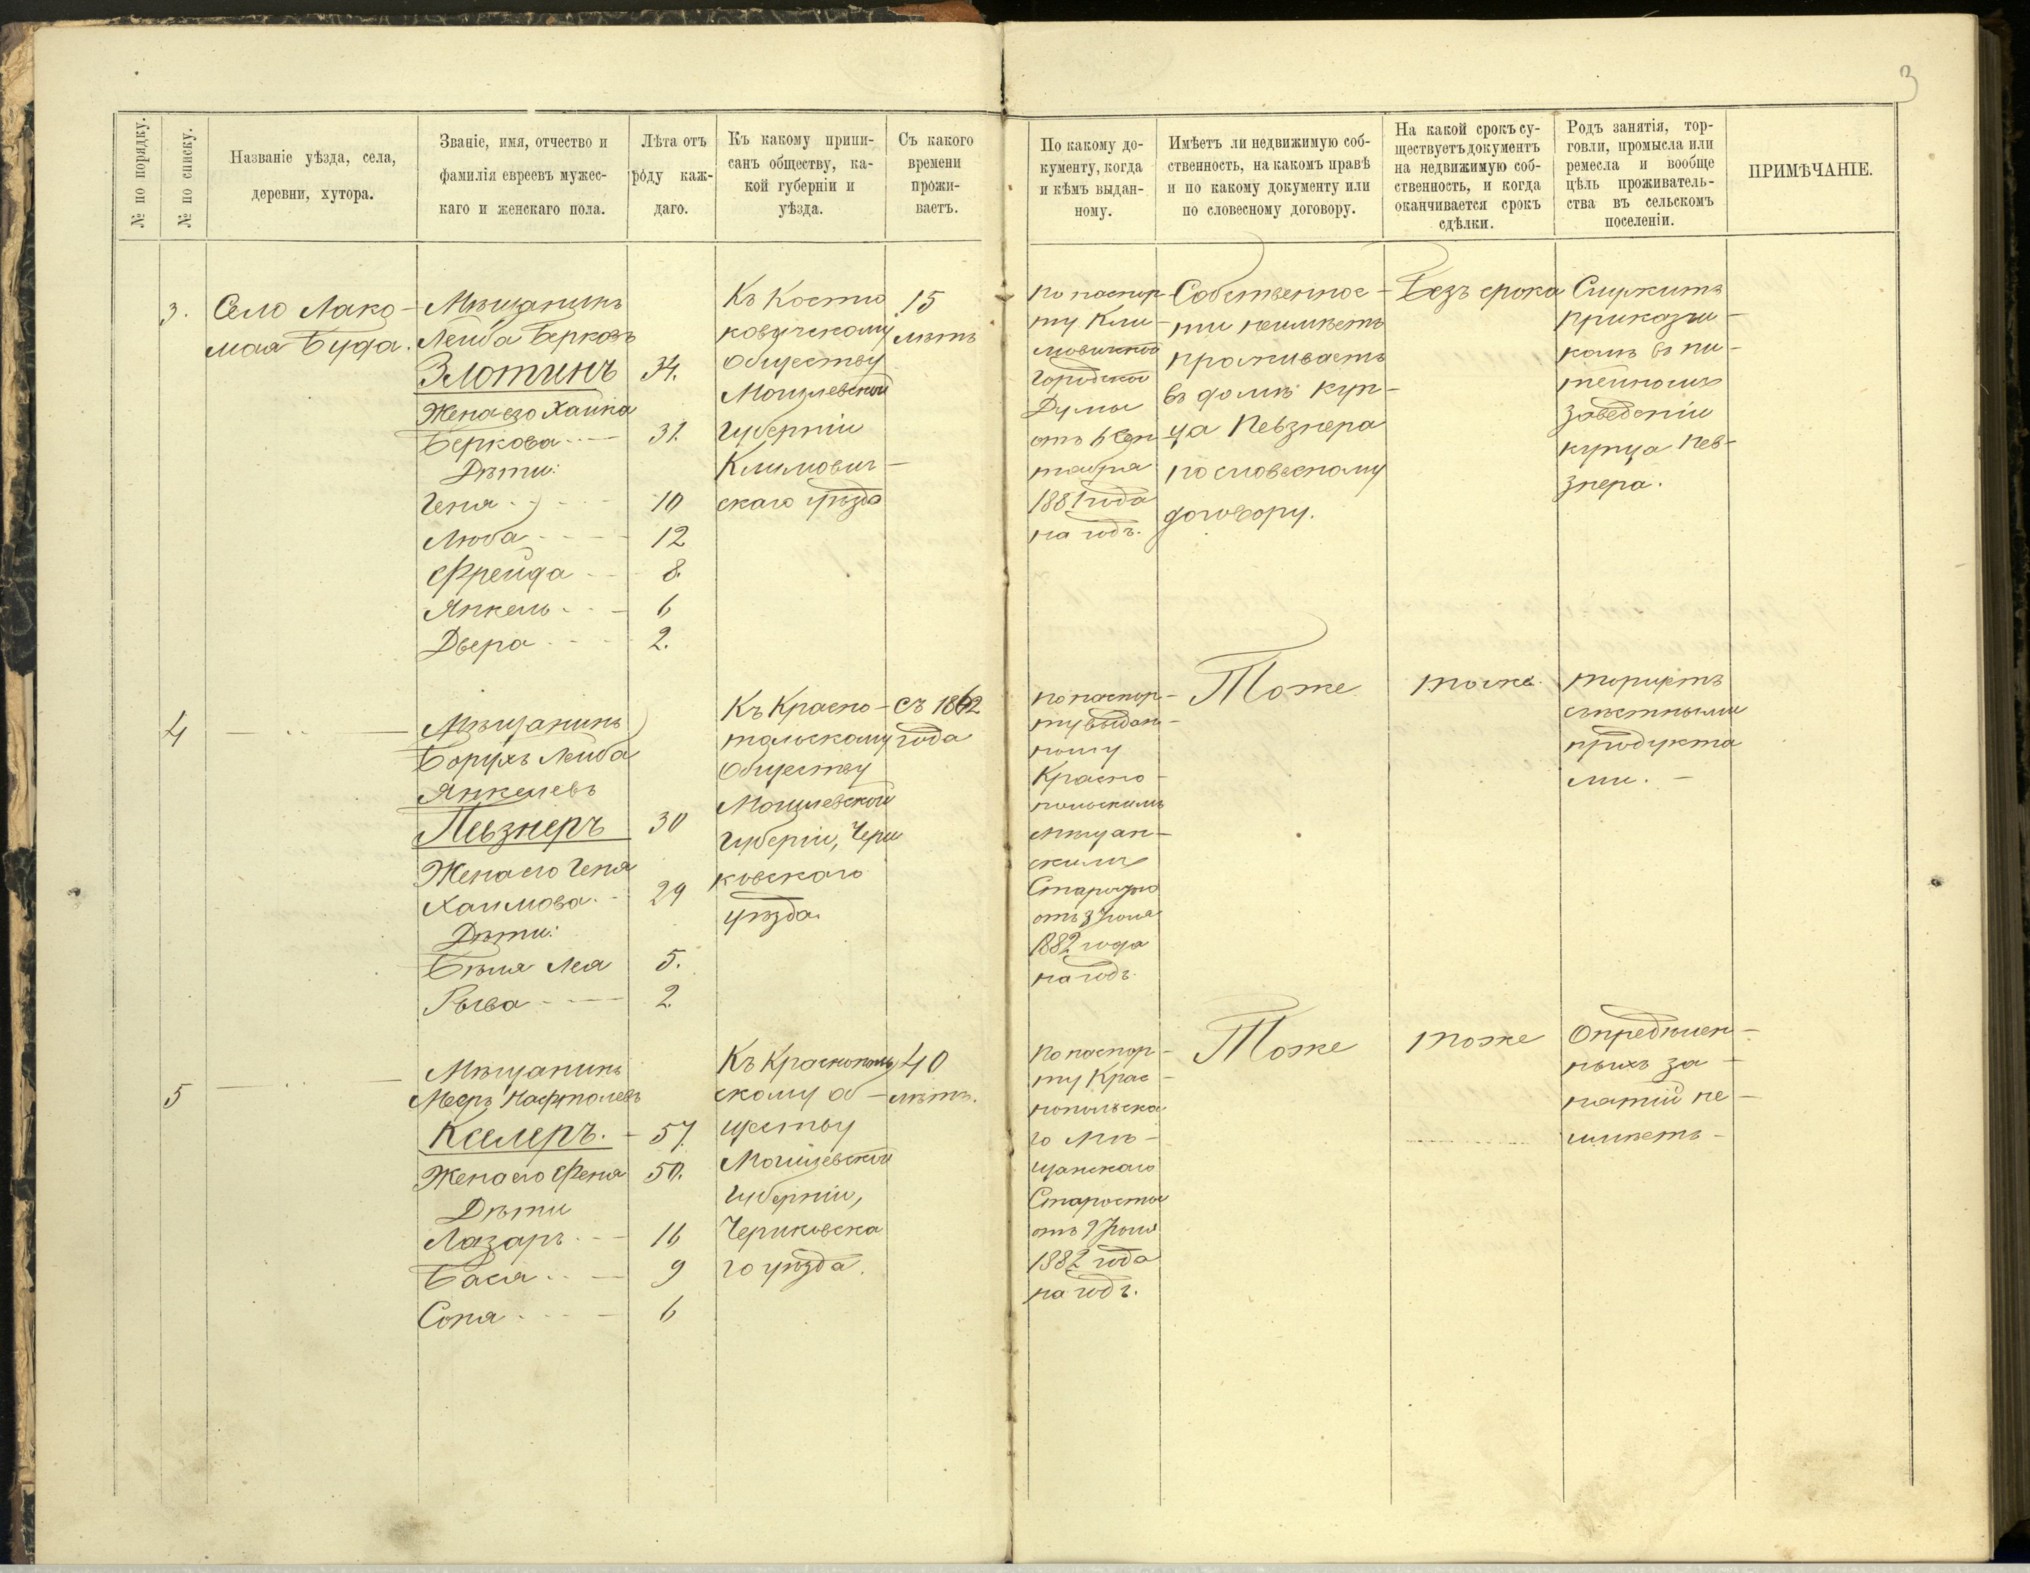 3
№ по порядку.
№ по списку.
Названіе уѣзда, села,
деревни, хутора.
Званіе, имя, отчество и
фамилія евреевъ мужес-
каго и женскаго пола.
Лѣта отъ
роду каж-
даго.
Къ какому припи-
санъ обществу, ка-
кой губерніи и
уѣзда.
Съ какого
времени
прожи-
ваетъ.
По какому до-
кументу, когда
и кѣмъ выдан-
ному.
Имѣетъ ли недвижимую соб-
ственность, на какомъ правѣ
и по какому документу или
по словесному договору.
На какой срокъ су-
ществуетъ документъ
на недвижимую соб-
ственность, и когда
оканчивается срокъ
сдѣлки.
Родъ занятія, тор-
говли, промысла или
ремесла и вообще
цѣль проживатель-
ства въ сельскомъ
поселеніи.
ПРИМѢЧАНІЕ.
3.
Село Лако-
мая Буда.
Мѣщанинъ
Лейба Берковъ
Злотинъ 34.
Жена его Хайка
Беркова 31.
Дѣти:
Геня 10
Люба 12
Фрейда 8.
Янкель 6
Двера 2.
Къ Костю
ковичскому
обществу
Могилевской
губерніи
Климович-
скаго уѣзда
15
лѣтъ
По паспор-
ту Кли-
мовичской
Городской
Думы
отъ Сен
тября
1881 года
на годъ.
Собственнос-
ти неимѣетъ
проживаетъ
въ домѣ куп-
ца Певзнера
по словесному
договору.
Безъ срока
Служитъ
приказчи-
комъ въ пи-
тейномъ
заведеніи
купца Пев-
знера.
4
Мѣщанинъ
Борухъ Лейба
Янкелевъ
Певзнеръ 30
Жена его Геня
Хаимова 29
Дѣти:
Бѣля Лея 5.
Рыва 2
Къ Красно-
польскому
Обществу
Могилевской
Губерніи, Чери
ковскаго
уѣзда.
Съ 1862
года
По паспор-
ту выдан-
ному
Красно-
польскимъ
мѣщан-
скимъ
Старостою
отъ 3 Іюня
1882 года
на годъ.
Тоже
тоже.
торгуетъ
съѣстными
продукта
ми.
5
Мѣщанинъ
Мееръ Нафтолевъ
Келеръ. 57.
Жена его Феня 50.
Дѣти
Лазарь 16
Бася 9
Соня 6
Къ Краснополь
скому об-
ществу
Могилевской
Губерніи,
Чериковска
го уѣзда.
40
лѣтъ.
По паспор-
ту Крас-
нопольска
го Мѣ-
щанскаго
Старосты
отъ 9 Іюня
1882 года
на годъ.
Тоже
тоже
Опредѣлен-
ныхъ за-
нятій не-
имѣетъ